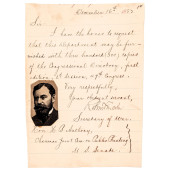 December 16th, 1882
Sir:
I have the honor to request
that this department may be fur-
nished with three hundred (300) copies
of the Congressional Directory, first
edition, 2d Session, 47th Congress.
Very respectfully,
Your obedient servant,
Secretary of War
Hon. H. B. Anthony,
Chairman Joint Com. on Public Printing
U. S. Senate.